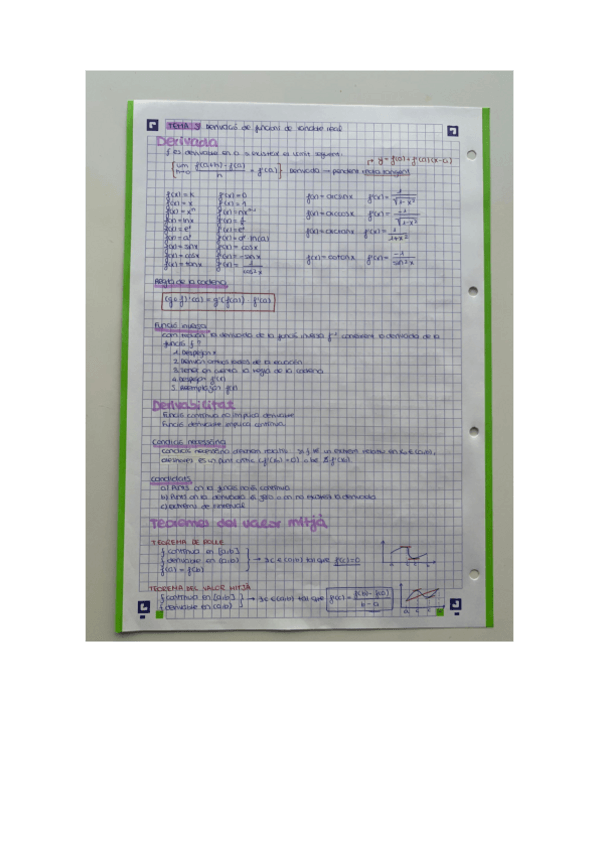 TEMA 3 Derivació de funcions de variable real
Derivada
f és derivable en a si existeix el límit següent:
y = f(a) + f'(a)(x-a)
lim h→0 f(a+h) - f(a) / h = f'(a) Derivada → pendent recta tangent
f(x) = K f'(x) = 0 f(x) = arcsinx f'(x) = 1/√1-x²
f(x) = x f'(x) = 1
f(x) = xⁿ f'(x) = nxⁿ⁻¹ f(x) = arccosx f'(x) = -1/√1-x²
f(x) = lnx f'(x) = 1/x
f(x) = eˣ f'(x) = eˣ f(x) = arctanx f'(x) = 1/1+x²
f(x) = aˣ f'(x) = aˣ ln(a)
f(x) = sinx f'(x) = cosx
f(x) = cosx f'(x) = -sinx f(x) = cotanx f'(x) = -1/sin²x
f(x) = tanx f'(x) = 1/cos²x
Regla de la cadena
(g∘f)'(a) = g'(f(a)) · f'(a)
Funció inversa
la derivada de la funció inversa f⁻¹ coneixent la derivada de la
funció f?
1. Despejar x
2. Derivar ambos lados de la ecuación
3. Tener en cuenta la regla de la cadena
4. Despejar f'(x)
5. Reemplazar f(x)
Derivabilitat
Funció contínua no implica derivable
Funció derivable implica contínua
Condició necessària
Condició necessària d'extrem relatiu. Si f té un extrem relatiu en x₀ ∈ (a,b),
aleshores és un punt crític (f'(x₀) = 0) o bé ∄ f'(x₀).
Candidats
a) Punts on la funció no és contínua
b) Punts on la derivada és zero o on no existeix la derivada
c) Extrems de l'interval
Teoremes del valor mitjà
TEOREMA DE ROLLE
f contínua en [a,b]
f derivable en (a,b) → ∃c ∈ (a,b) tal que f'(c) = 0
f(a) = f(b)
TEOREMA DEL VALOR MITJÀ
f contínua en [a,b] → ∃c ∈ (a,b) tal que f'(c) = f(b) - f(a) / b - a
f derivable en (a,b)
a c b